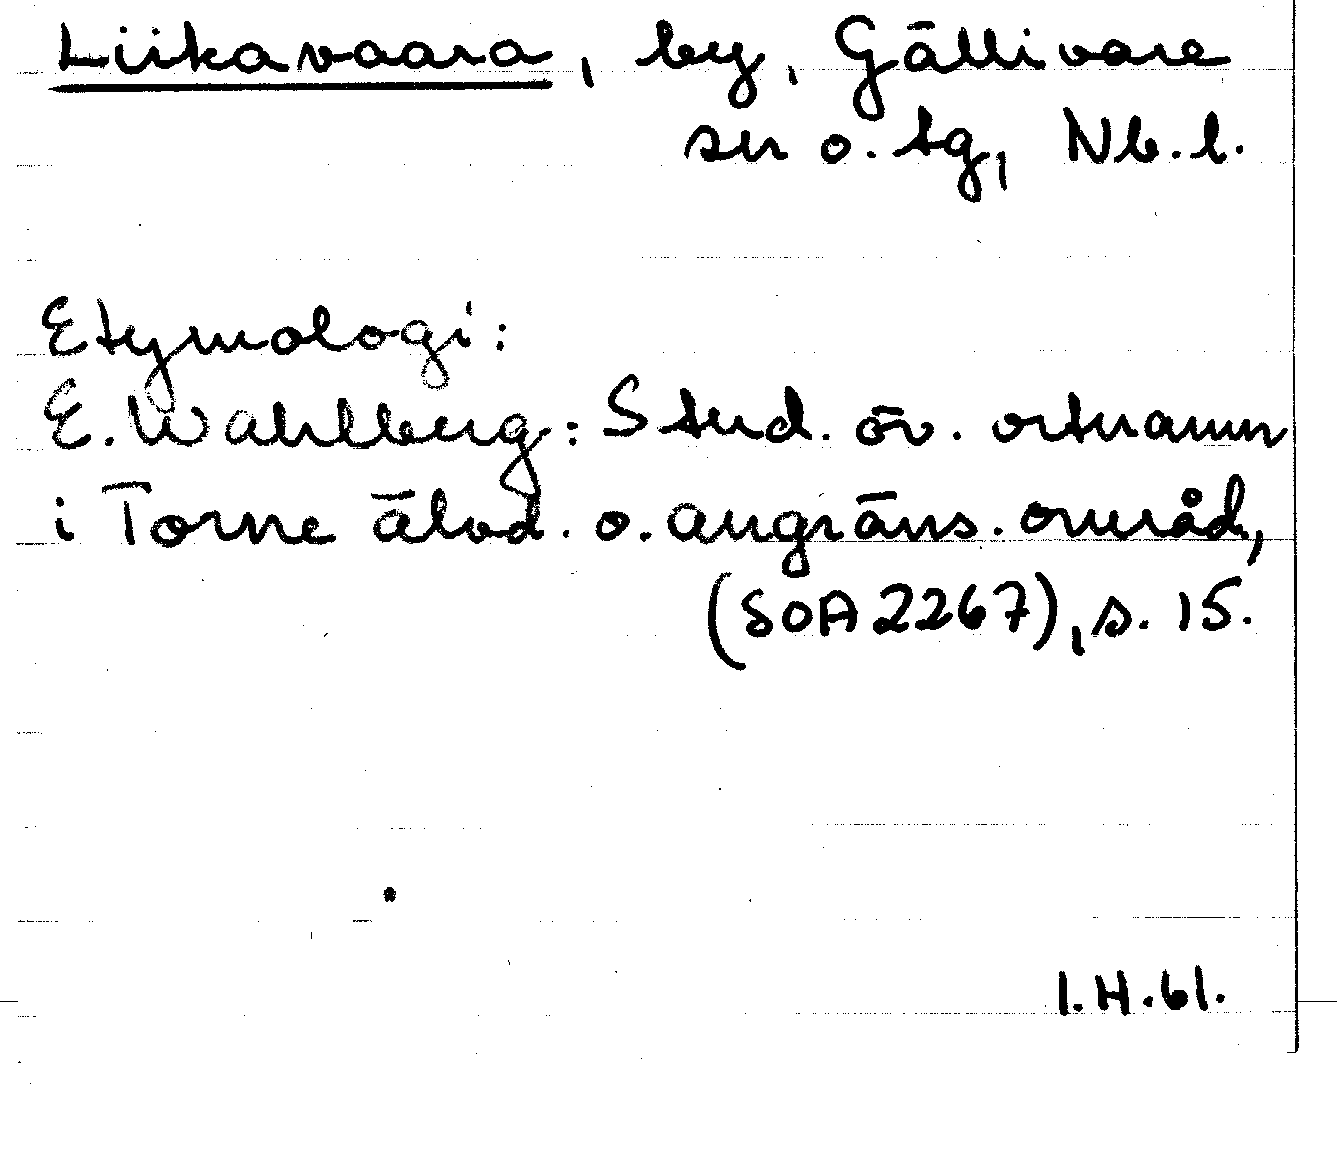 Liikavaara, by, Gällivare
sn o. tg, Nb.l.
Etymologi:
E. Wahlberg: Stud. öv. ortnamn
i Torne älvd. o. angräns. område,
(SOA 2267), s. 15.
I.H.61.